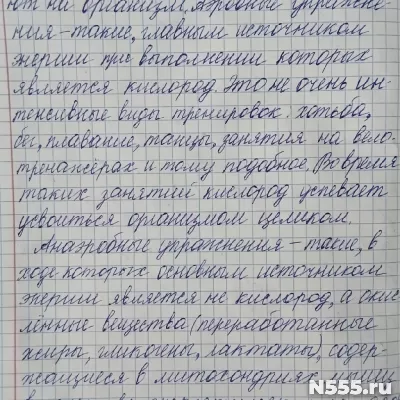 ют на организм. Аэробные упражне-
ния – такие, главным источником
энергии при выполнении которых
является кислород. Это не очень ин-
тенсивные виды тренировок: ходьба,
бег, плавание, танцы, занятия на вело-
тренажёрах и тому подобное. Во время
таких занятий кислород успевает
усвоиться организмом целиком.
Анаэробные упражнения – такие, в
ходе которых основным источником
энергии является не кислород, а окис-
лённые вещества (переработанные
жиры, гликогены, лактаты), содер-
жащиеся в митохондриях мышц
N555.ru